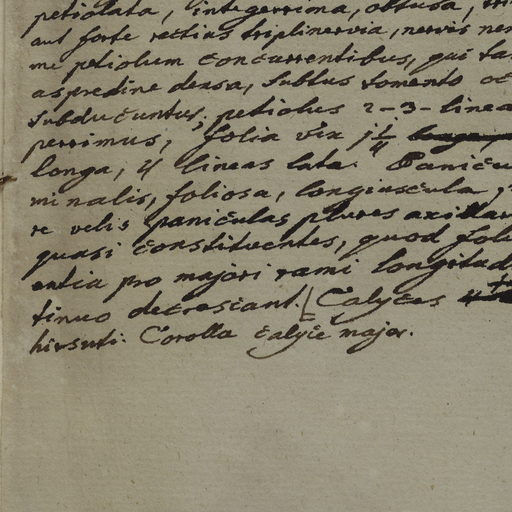 petiolata, integerrima, obtusa,
aut forte rectius triplinervia, nervis
me petiolum concurrentibus, qui
aspredine densa, subtus tomento
subducuntur; petiolus 2-3-linea
perrimus, folia vix 1 1/4 longa,
longa, 4 lineas lata. Panicu
minalis, foliosa, longiuscula,
re velis paniculas plures axillar
quasi constituentes, quod foli
entia pro majori rami longitud
tinuo decrescant. Calyces 4
hirsuti. Corolla calyce major.